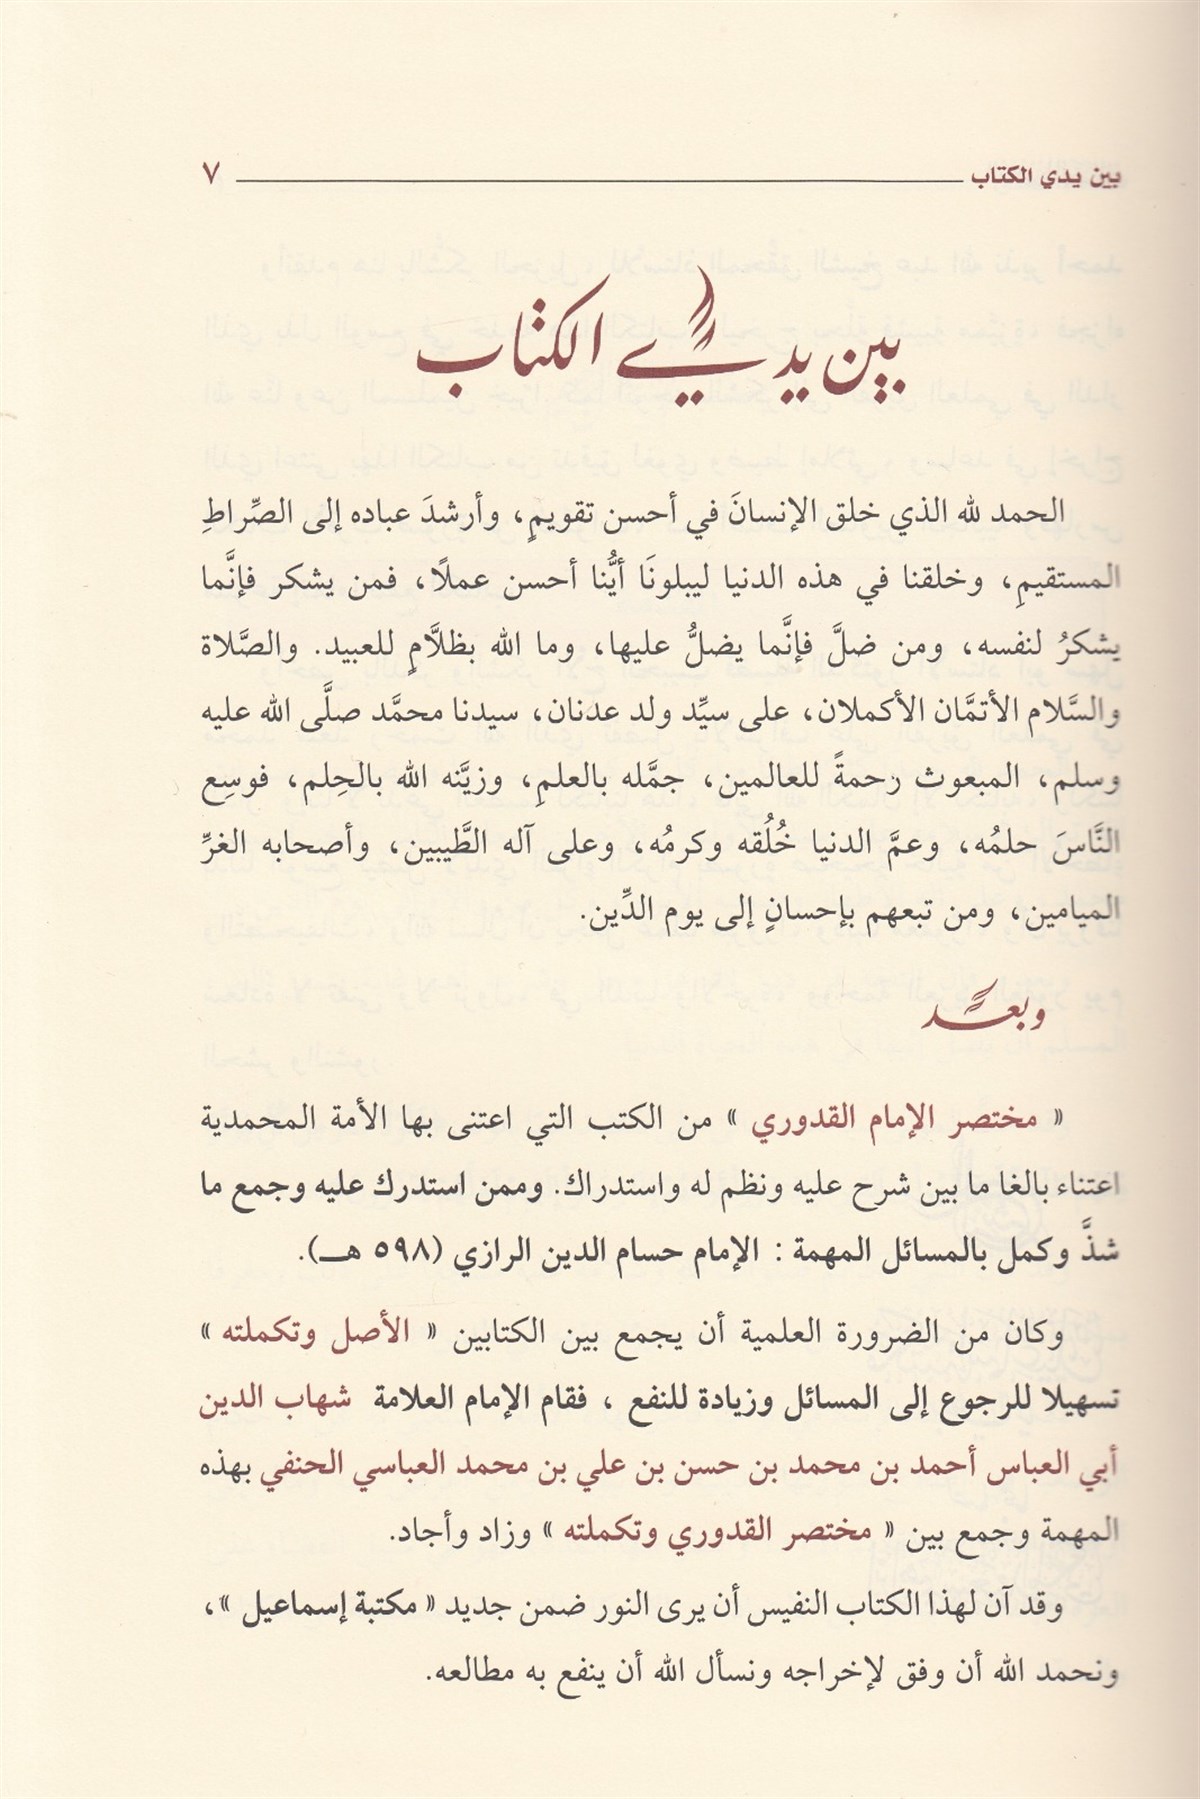 بين يدي الكتاب ٧
بين يدي الكتاب
الحمد لله الذي خلق الإنسانَ في أحسن تقويمٍ، وأرشدَ عباده إلى الصِّراطِ
المستقيمِ، وخلقنا في هذه الدنيا ليبلونَا أيُّنا أحسن عملًا، فمن يشكر فإنَّما
يشكرُ لنفسه، ومن ضلَّ فإنَّما يضلُّ عليها، وما الله بظلَّامٍ للعبيد. والصَّلاة
والسَّلام الأتمَّان الأكملان، على سيِّد ولد عدنان، سيدنا محمَّد صلَّى الله عليه
وسلم، المبعوث رحمةً للعالمين، جمَّله بالعلمِ، وزيَّنه الله بالحِلم، فوسِع
النَّاسَ حلمُه، وعمَّ الدنيا خُلُقه وكرمُه، وعلى آله الطَّيبين، وأصحابه الغرِّ
الميامين، ومن تبعهم بإحسانٍ إلى يوم الدِّين.
وبعد
« مختصر الإمام القدوري » من الكتب التي اعتنى بها الأمة المحمدية
اعتناء بالغا ما بين شرح عليه ونظم له واستدراك. وممن استدرك عليه وجمع ما
شذَّ وكمل بالمسائل المهمة : الإمام حسام الدين الرازي (٥٩٨ هـ).
وكان من الضرورة العلمية أن يجمع بين الكتابين « الأصل وتكملته »
تسهيلا للرجوع إلى المسائل وزيادة للنفع ، فقام الإمام العلامة شهاب الدين
أبي العباس أحمد بن محمد بن حسن بن علي بن محمد العباسي الحنفي بهذه
المهمة وجمع بين « مختصر القدوري وتكملته » وزاد وأجاد.
وقد آن لهذا الكتاب النفيس أن يرى النور ضمن جديد « مكتبة إسماعيل »،
ونحمد الله أن وفق لإخراجه ونسأل الله أن ينفع به مطالعه.